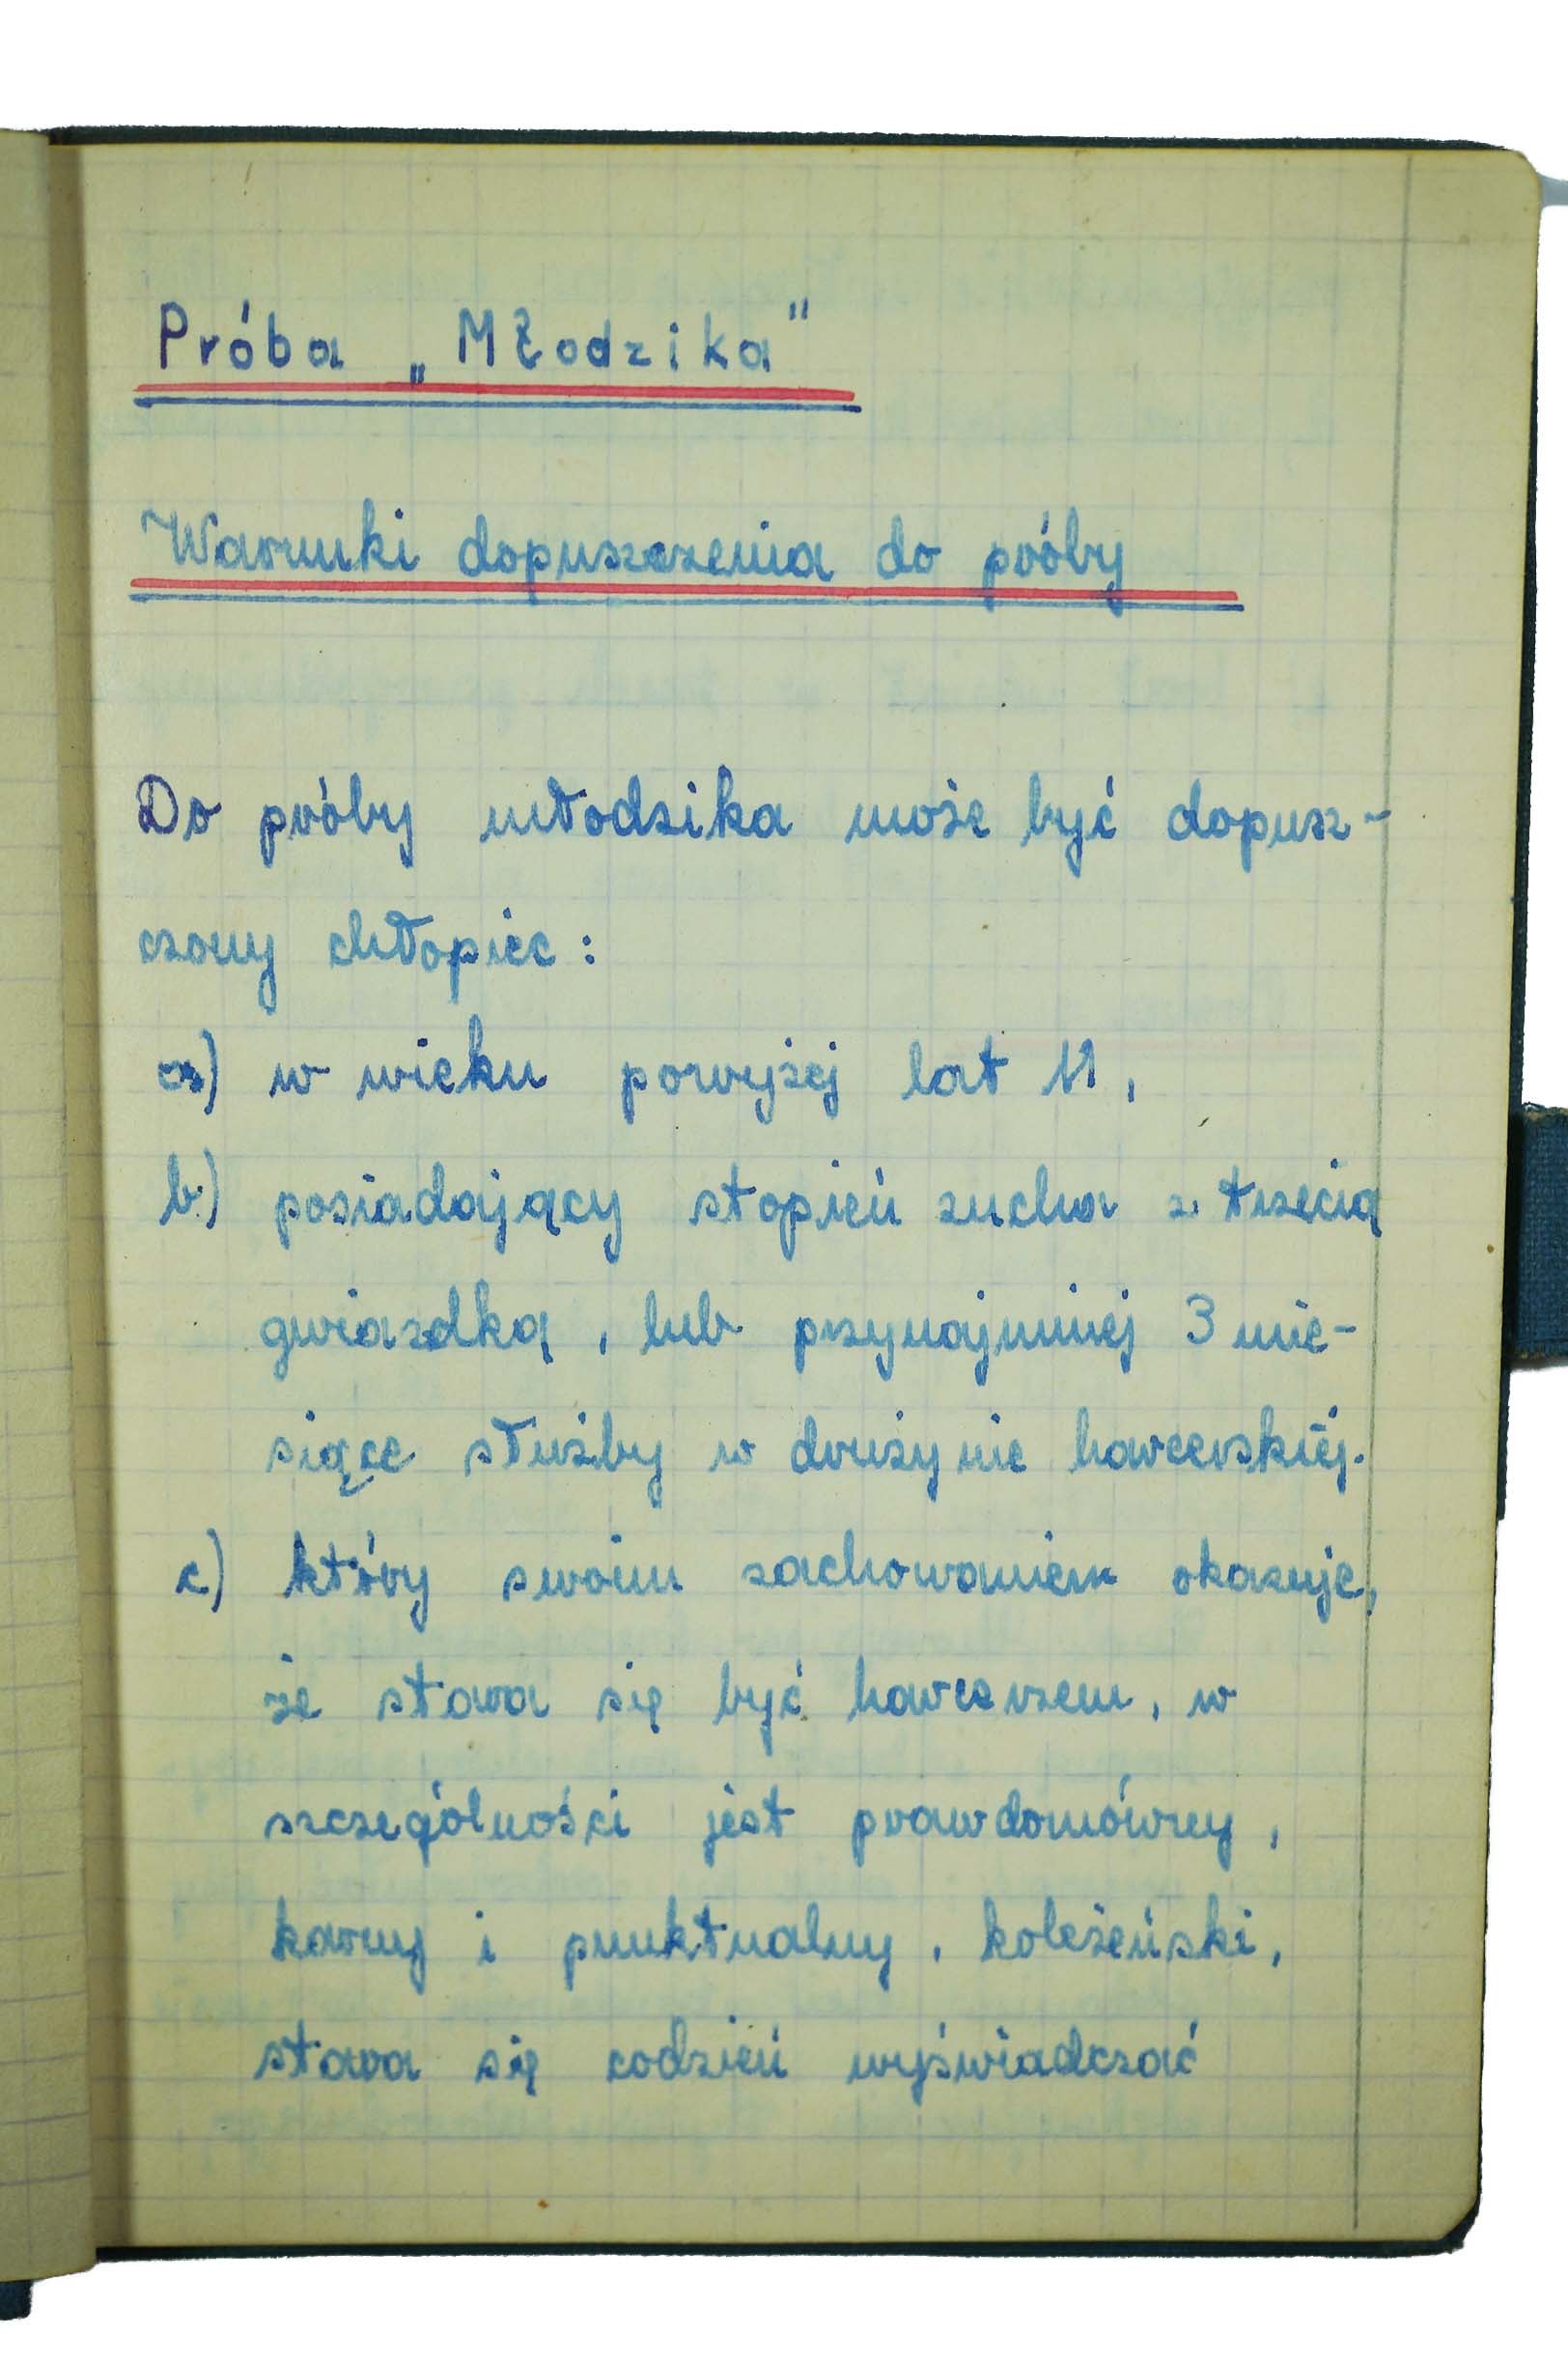 Próba „Młodzika"
Warunki dopuszczenia do próby
Do próby młodzika może być dopusz-
czony chłopiec:
a) w wieku powyżej lat 11,
b) posiadający stopień zucha z trzecią
gwiazdką, lub przynajmniej 3 mie-
siące służby w drużynie harcerskiej.
c) który swoim zachowaniem okazuje,
że stara się być harcerzem, w
szczególności jest prawdomówny,
karny i punktualny, koleżeński,
stara się codzień wyświadczać